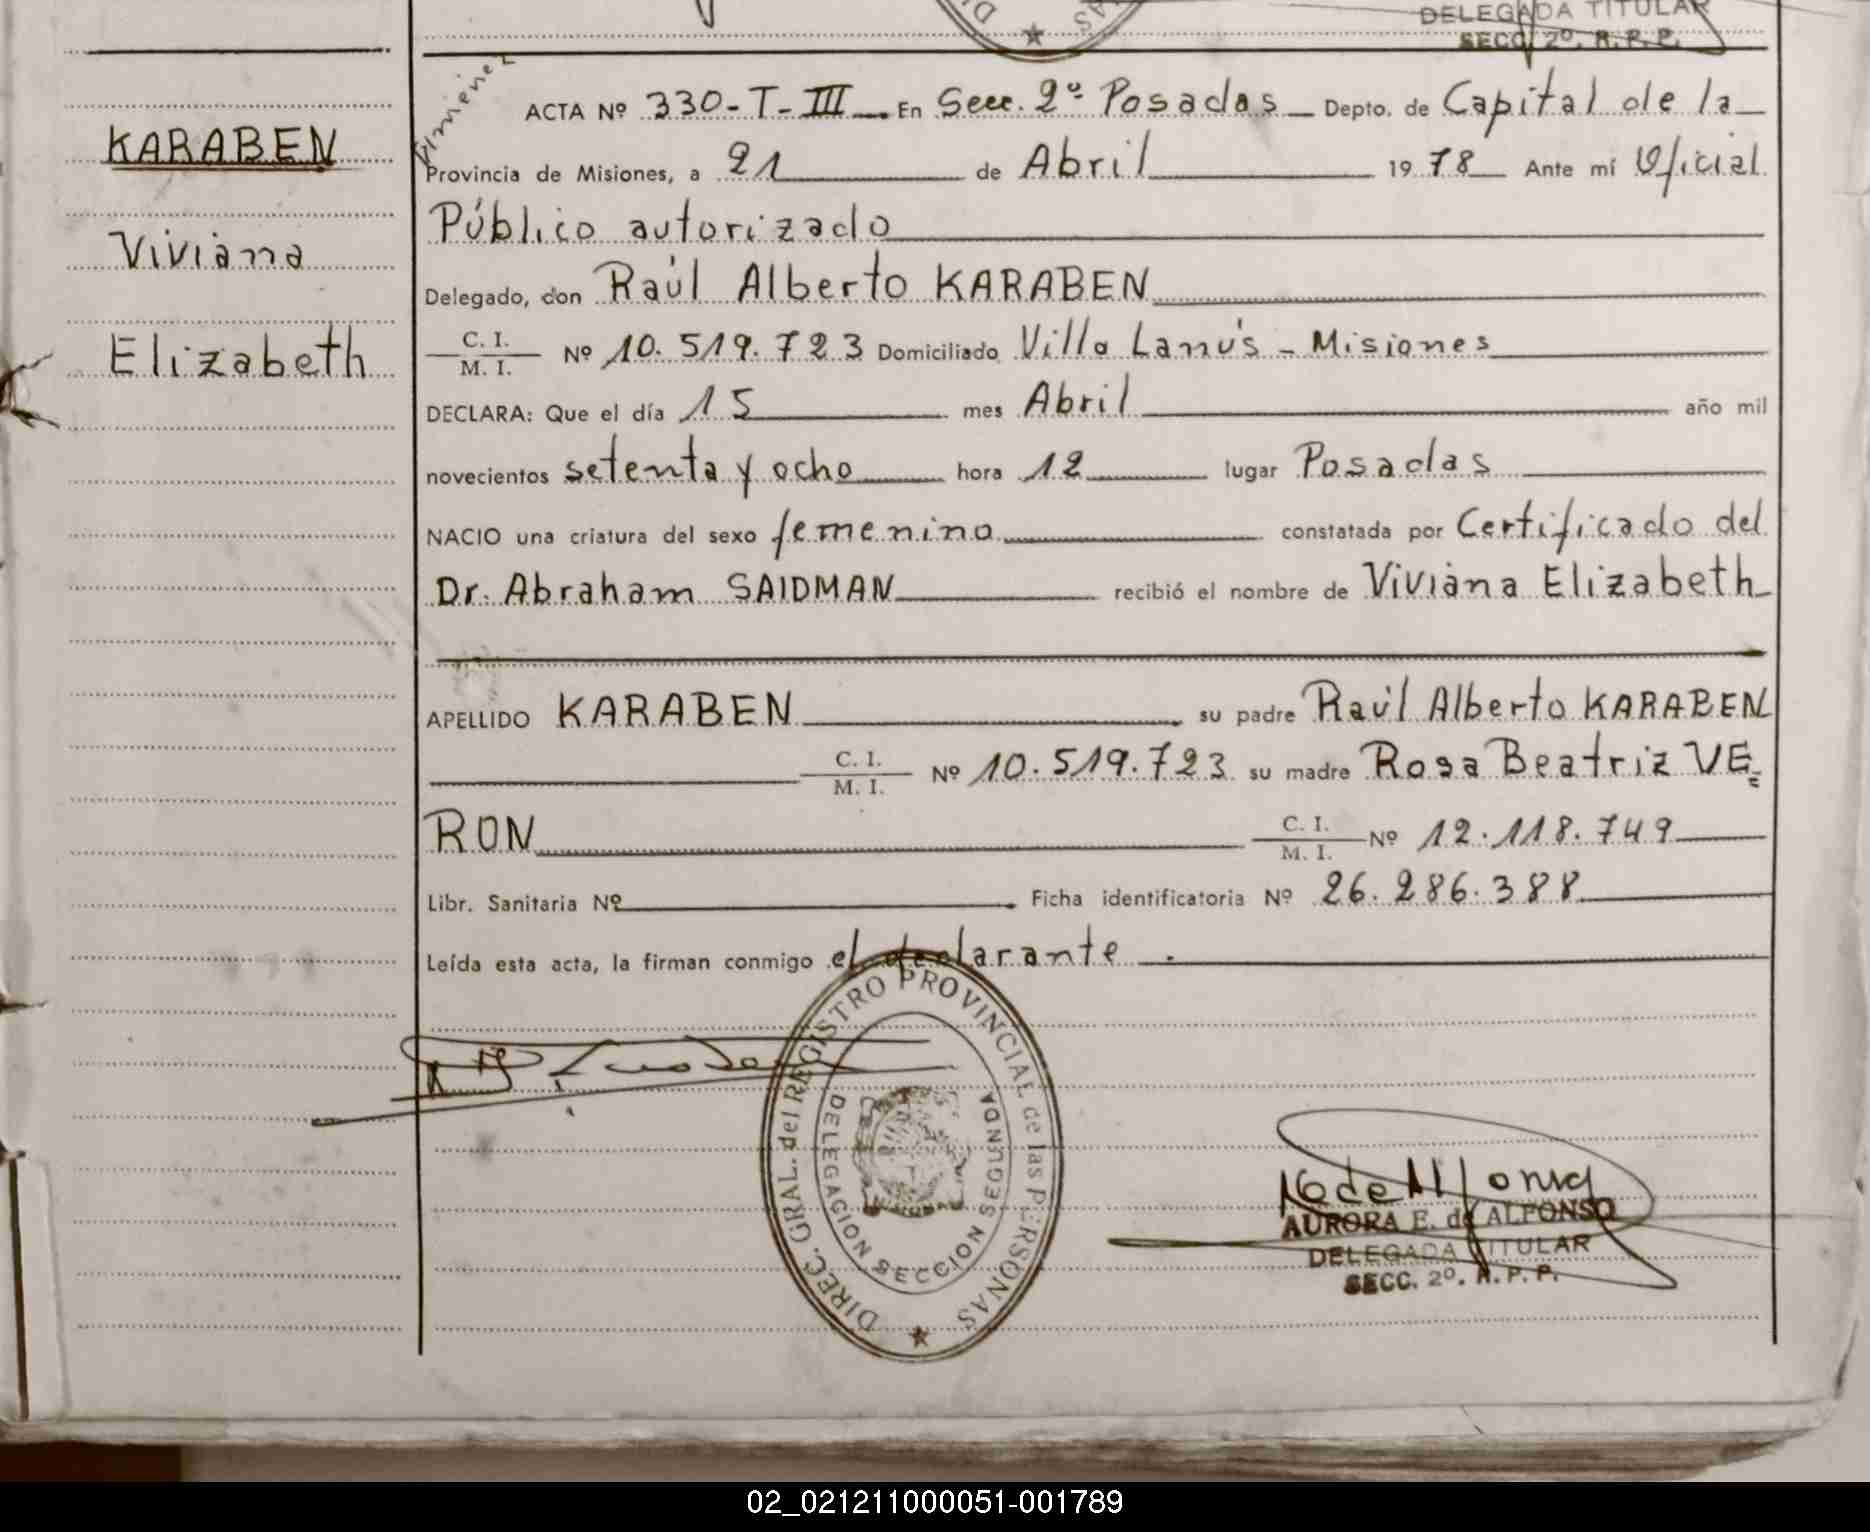 DELEGADA TITULAR
SECC. 2º. R. P. P.
KARABEN
Viviana
Elizabeth
ACTA Nº 330-T-III En Secc. 2º Posadas Depto. de Capital de la
Provincia de Misiones, a 21 de Abril 1978 Ante mí Oficial
Público autorizado
Delegado, don Raúl Alberto KARABEN
C. I.
M. I. Nº 10.519.723 Domiciliado Villa Lanús - Misiones
DECLARA: Que el día 15 mes Abril año mil
novecientos setenta y ocho hora 12 lugar Posadas
NACIO una criatura del sexo femenino constatada por Certificado del
Dr. Abraham SAIDMAN recibió el nombre de Viviana Elizabeth
APELLIDO KARABEN su padre Raúl Alberto KARABEN
C. I.
M. I. Nº 10.519.723 su madre Rosa Beatriz VE=
RON C. I.
M. I. Nº 12.118.749
Libr. Sanitaria Nº Ficha identificatoria Nº 26.286.388
Leída esta acta, la firman conmigo el declarante.
DIREC. GRAL. del REGISTRO PROVINCIAL de las PERSONAS
DELEGACION SECCION SEGUNDA
AURORA E. de ALFONSO
DELEGADA TITULAR
SECC. 2º. R. P. P.
02_021211000051-001789